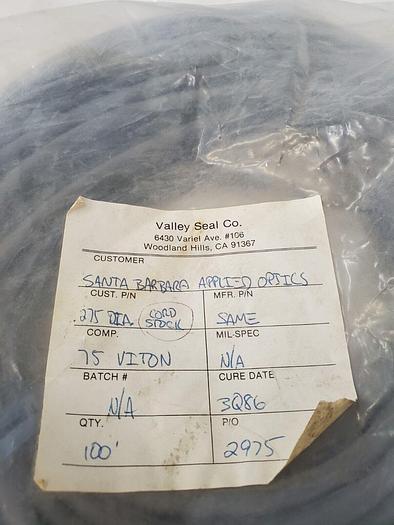 Valley Seal Co.
6430 Variel Ave. #106
Woodland Hills, CA 91367
CUSTOMER
SANTA BARBARA APPLIED OPTICS
CUST. P/N
MFR. P/N
.275 DIA. CORD STOCK
SAME
COMP.
MIL-SPEC
75 VITON
N/A
BATCH #
CURE DATE
N/A
3Q86
QTY.
P/O
100'
2975